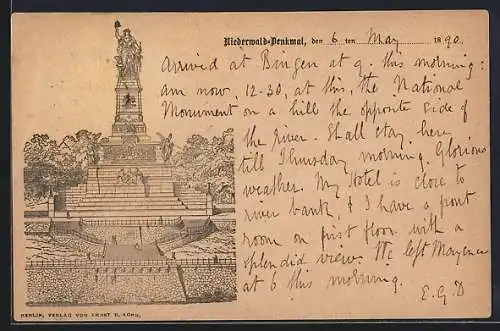 Niederwald-Denkmal, den 6 ten May 1890.
Arrived at Bingen at 9. this morning:
am now, 12-30, at this, the National
Monument on a hill the opposite side of
the river - Shall stay here
till Thursday morning. Glorious
weather. My Hotel is close to
river bank, & I have a front
room on first floor with a
splendid view. We left Mayence
at 6 this morning.
E. G. D
BERLIN, VERLAG VON ERNST